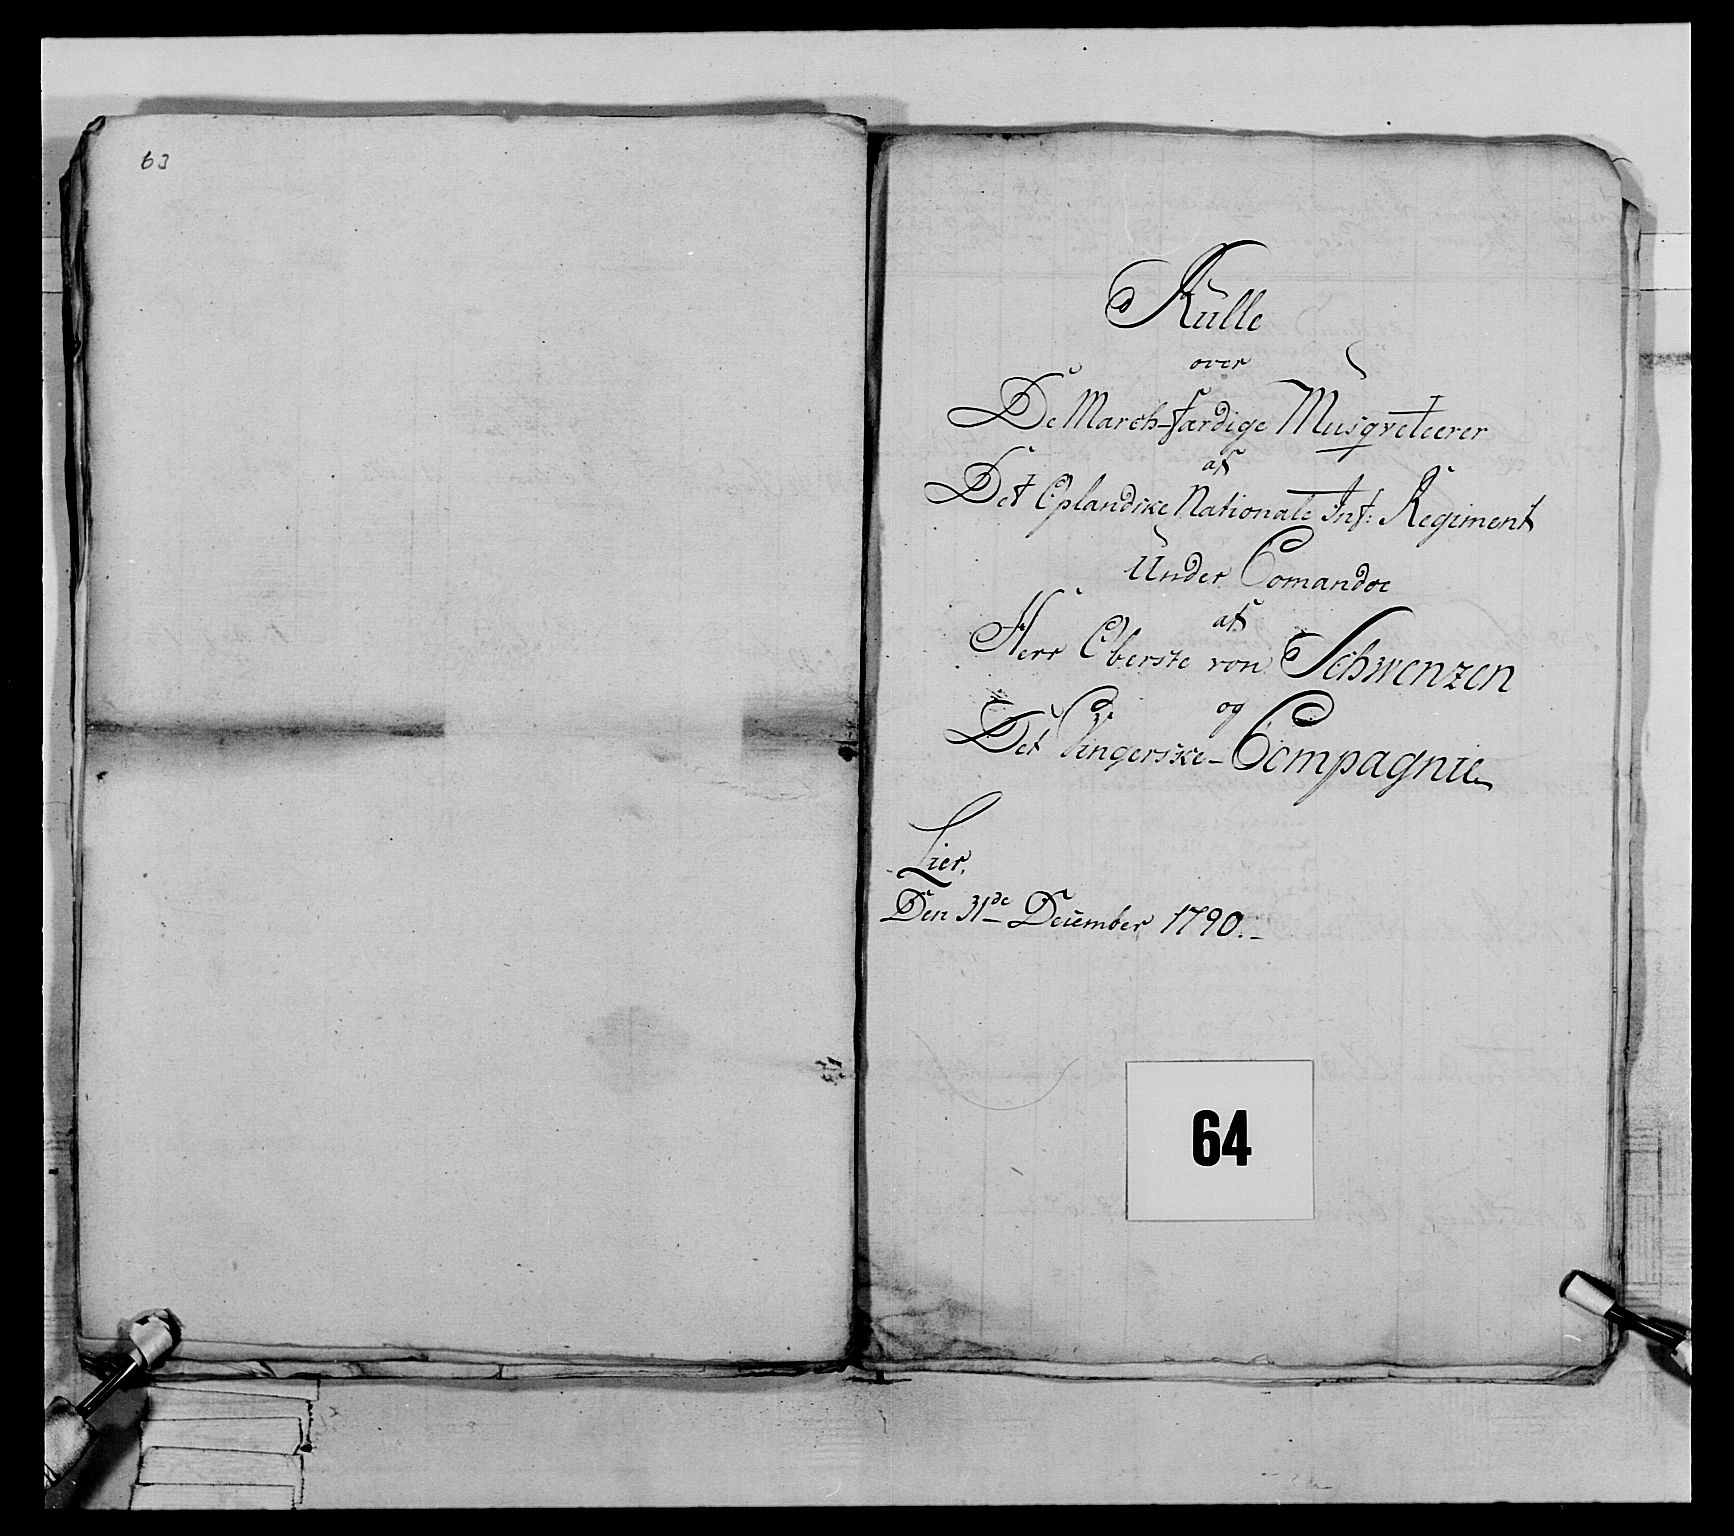 63
Rulle
over
De March-færdige Musqveteerer
af
Det Oplandske Nationale Inf: Regiment
Under Comandoe
af
Herr Oberste von Schwenzen
og
Det Vingerske-Compagnie
Lier,
Den 31de December 1790.-
64